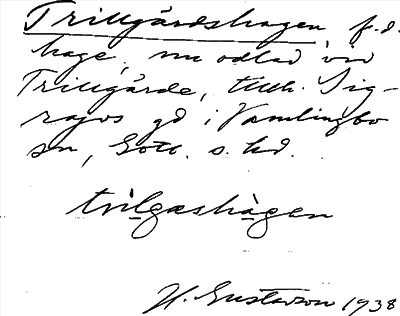 Trillgårdshagen, f.d.
hage, nu odlad, vid
Trillgårde, tillh. Sig-
rajvs gd i Vamlingbo
sn, Gotl. s. hd.
trilgashagen
H. Gustavson 1938